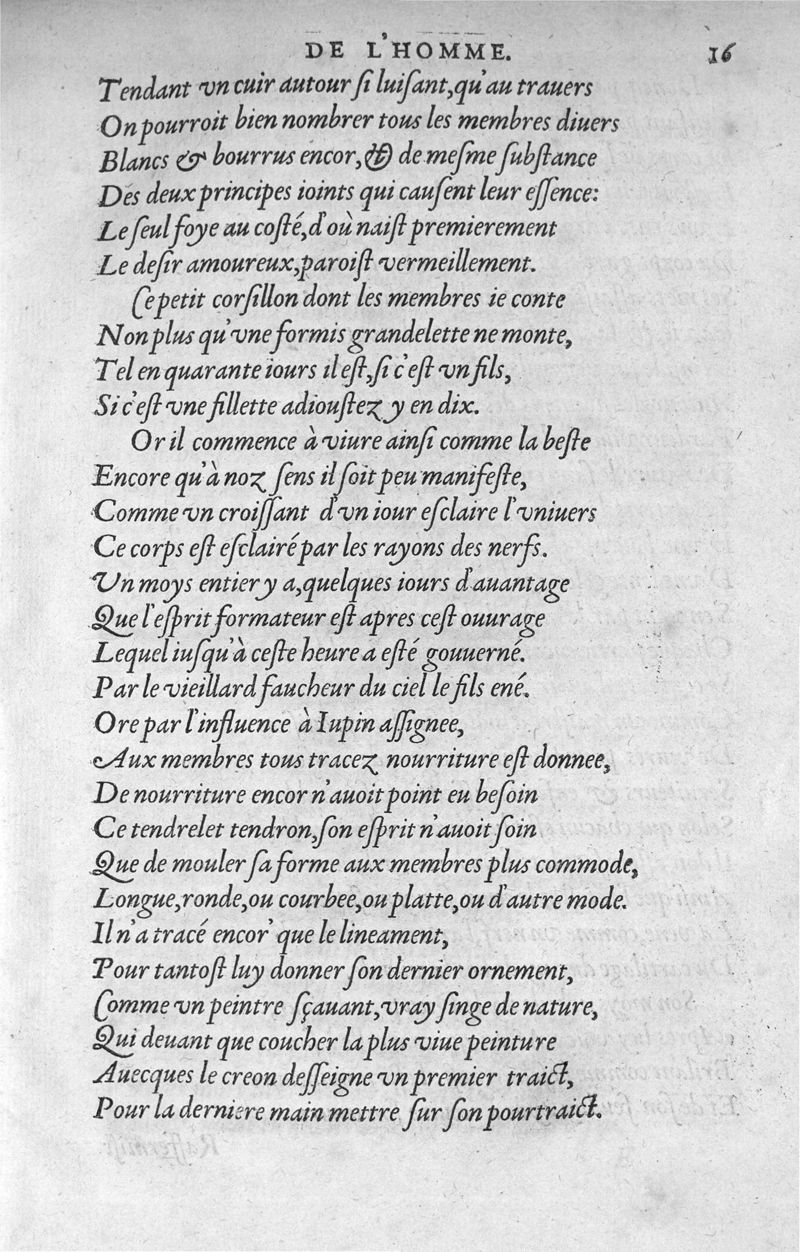 DE L'HOMME. 16
Tendant vn cuir autour ſi luiſant, qu'au trauers
On pourroit bien nombrer tous les membres diuers
Blancs & bourrus encor, & de meſme ſubſtance
Des deux principes ioints qui cauſent leur eſſence:
Le ſeul foye au coſté, d'où naiſt premierement
Le deſir amoureux, paroiſt vermeillement.
Ce petit corſillon dont les membres ie conte
Non plus qu'vne formis grandelette ne monte,
Tel en quarante iours il eſt, ſi c'eſt vn fils,
Si c'eſt vne fillette adiouſtez y en dix.
Or il commence à viure ainſi comme la beſte
Encore qu'à noz ſens il ſoit peu manifeſte,
Comme vn croiſſant d'vn iour eſclaire l'vniuers
Ce corps eſt eſclairé par les rayons des nerfs.
Vn moys entier y a, quelques iours d'auantage
Que l'eſprit formateur eſt apres ceſt ouurage
Lequel iuſqu'à ceſte heure a eſté gouuerné.
Par le vieillard faucheur du ciel le fils ené.
Ore par l'influence à Iupin aſſignee,
Aux membres tous tracez nourriture eſt donnee,
De nourriture encor n'auoit point eu beſoin
Ce tendrelet tendron, ſon eſprit n'auoit ſoin
Que de mouler ſa forme aux membres plus commode,
Longue, ronde, ou courbee, ou platte, ou d'autre mode.
Il n'a tracé encor' que le lineament,
Pour tantoſt luy donner ſon dernier ornement,
Comme vn peintre ſçauant, vray ſinge de nature,
Qui deuant que coucher la plus viue peinture
Auecques le creon deſſeigne vn premier traict,
Pour la derniere main mettre ſur ſon pourtraict.